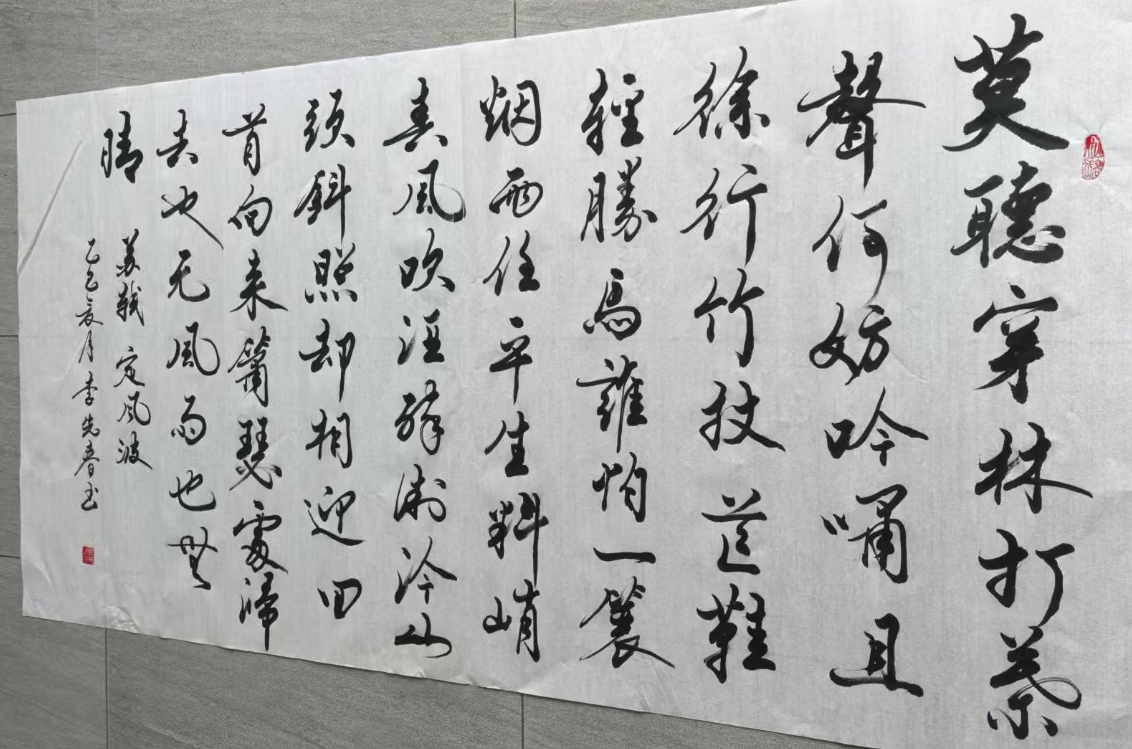 莫聽穿林打葉
聲何妨吟嘯且
徐行竹杖芒鞋
輕勝馬誰怕一蓑
烟雨任平生料峭
春風吹酒醒微冷山
頭斜照却相迎回
首向来蕭瑟處歸
去也无風雨也無
晴
苏軾 定風波
乙巳夏月 李先春书